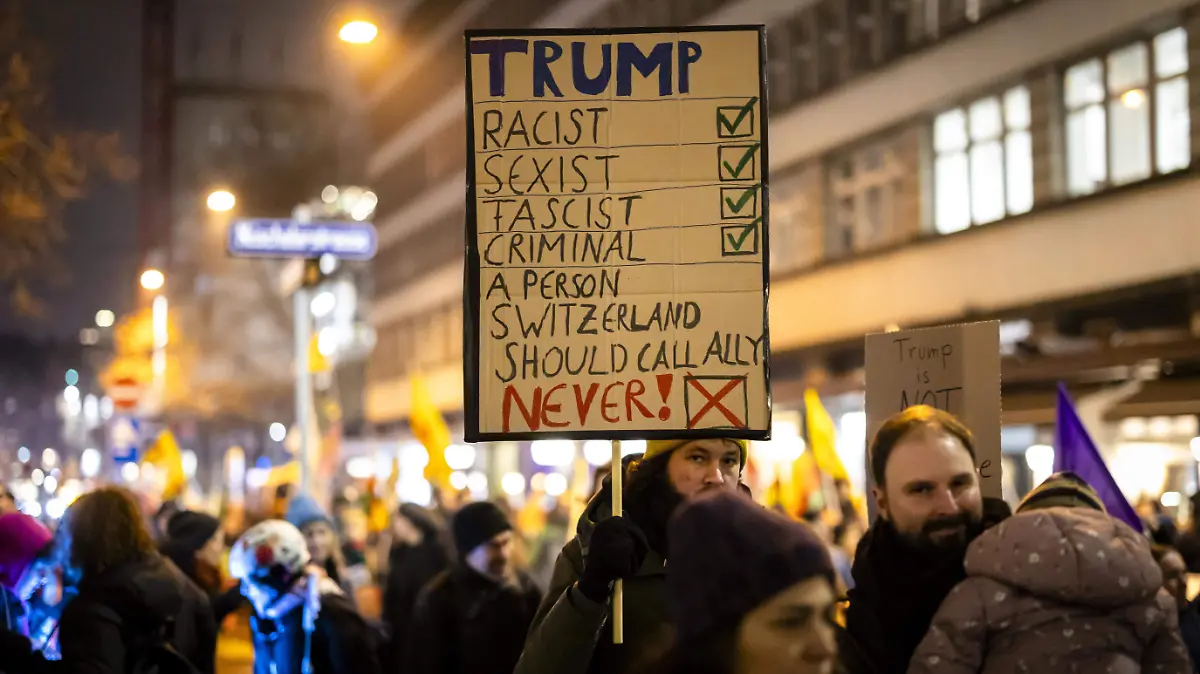 TRUMP
RACIST
SEXIST
FASCIST
CRIMINAL
A PERSON
SWITZERLAND
SHOULD CALL ALLY
NEVER!
Trump
is
NOT